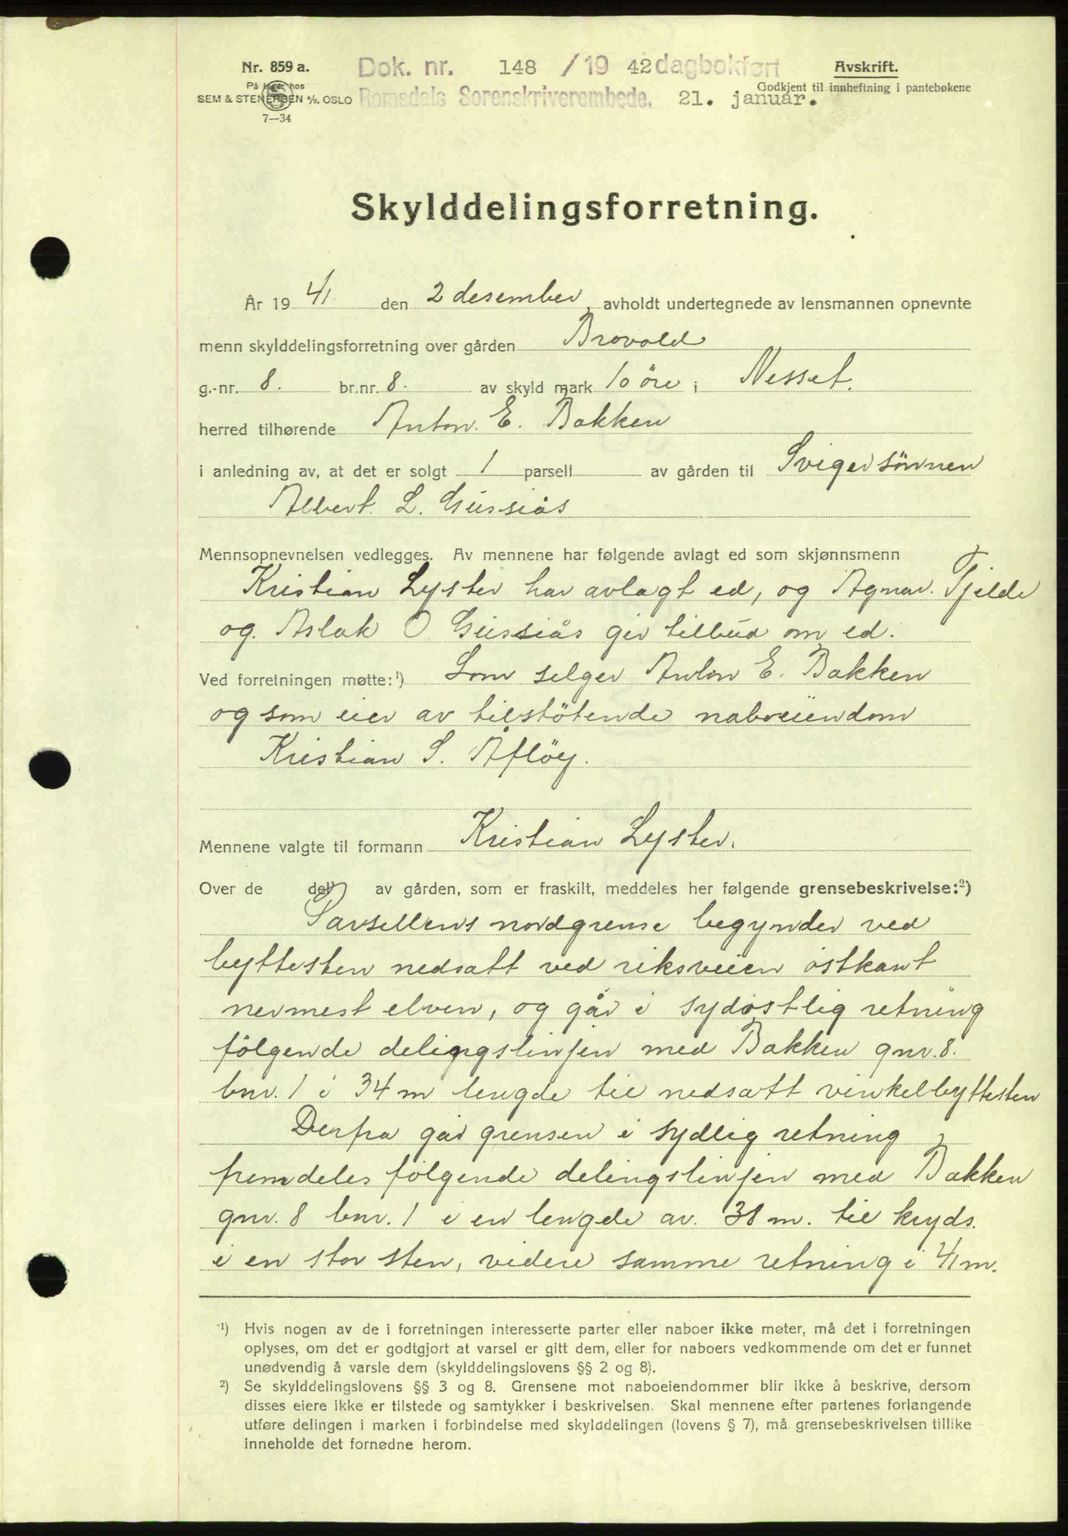 Nr. 859 a.
På lager hos
SEM & STENERSEN A/S, OSLO
7—34
Dok. nr. 148 / 19 42 dagbokført
Romsdals Sorenskriverembede. 21. januar.
Avskrift.
Godkjent til innheftning i pantebøkene
Skylddelingsforretning.
År 19 41. den 2 desember, avholdt undertegnede av lensmannen opnevnte
menn skylddelingsforretning over gården Brovold
g.-nr. 8. br.nr. 8. av skyld mark 10 öre i Nesset.
herred tilhørende Anton. E. Bakken
i anledning av, at det er solgt 1 parsell av gården til Svigersönnen
Albert. L. Gussiås
Mennsopnevnelsen vedlegges. Av mennene har følgende avlagt ed som skjønnsmenn
Kristian Lyster har avlagt ed, og Agnar. Tjelde
og. Aslak O Gussiås gir tilbud om ed.
Ved forretningen møtte:¹) Som selger Anton E. Bakken
og som eier av tilstötende naboeiendom
Kristian S. Åflöy.
Mennene valgte til formann Kristian Lyster.
Over de del av gården, som er fraskilt, meddeles her følgende grensebeskrivelse:²)
Parsellens nordgrense begynder ved
byttesten nedsatt ved riksveien östkant
nermest elven, og går i sydostlig retning
fölgende delingslinjen med Bakken gnr. 8.
bnr. 1 i 34 m lengde til nedsatt vinkelbyttesten
Derfra går grensen i sydlig retning
fremdeles fölgende delingslinjen med Bakken
gnr. 8 bnr. 1 i en lengde av. 38 m. til kryds.
i en stor sten, videre samme retning i 41 m.
¹) Hvis nogen av de i forretningen interesserte parter eller naboer ikke møter, må det i forretningen
oplyses, om det er godtgjort at varsel er gitt dem, eller for naboers vedkommende om det er funnet
unødvendig å varsle dem (skylddelingslovens §§ 2 og 8).
²) Se skylddelingslovens §§ 3 og 8. Grensene mot naboeiendommer blir ikke å beskrive, dersom
disses eiere ikke er tilstede og samtykker i beskrivelsen. Skal mennene efter partenes forlangende
utføre delingen i marken i forbindelse med skylddelingen (lovens § 7), må grensebeskrivelsen tillike
inneholde det fornødne herom.